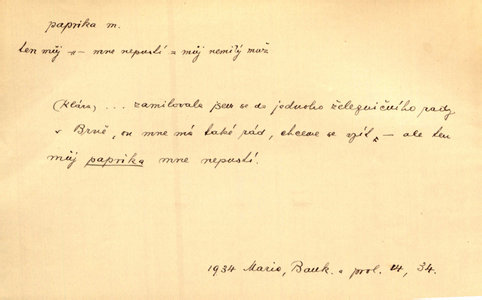 paprika m.
ten můj ~ mne nepustí = můj nemilý muž
(Klára) ... zamilovala jsem se do jednoho železničního rady
v Brně, on mne má také rád, chceme se vzít, – ale ten
můj paprika mne nepustí.
1934 Mario, Bank. a prol. 34.